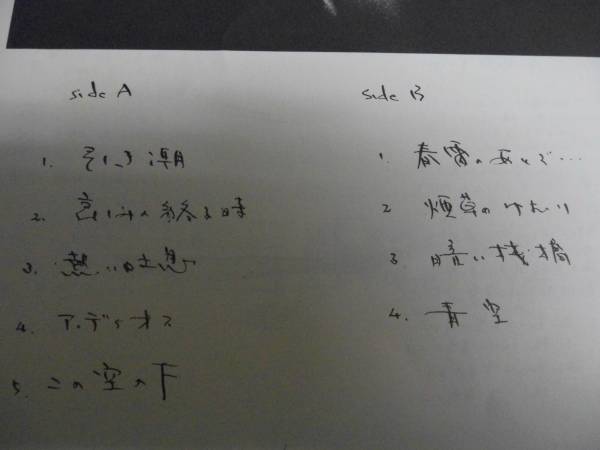 side A
1. 引き潮
2. 哀しみの終る時
3. 熱い吐息
4. アディオス
5. この空の下
side B
1. 春雷のあとで…
2 煙草のけむり
3 暗い桟橋
4. 青空